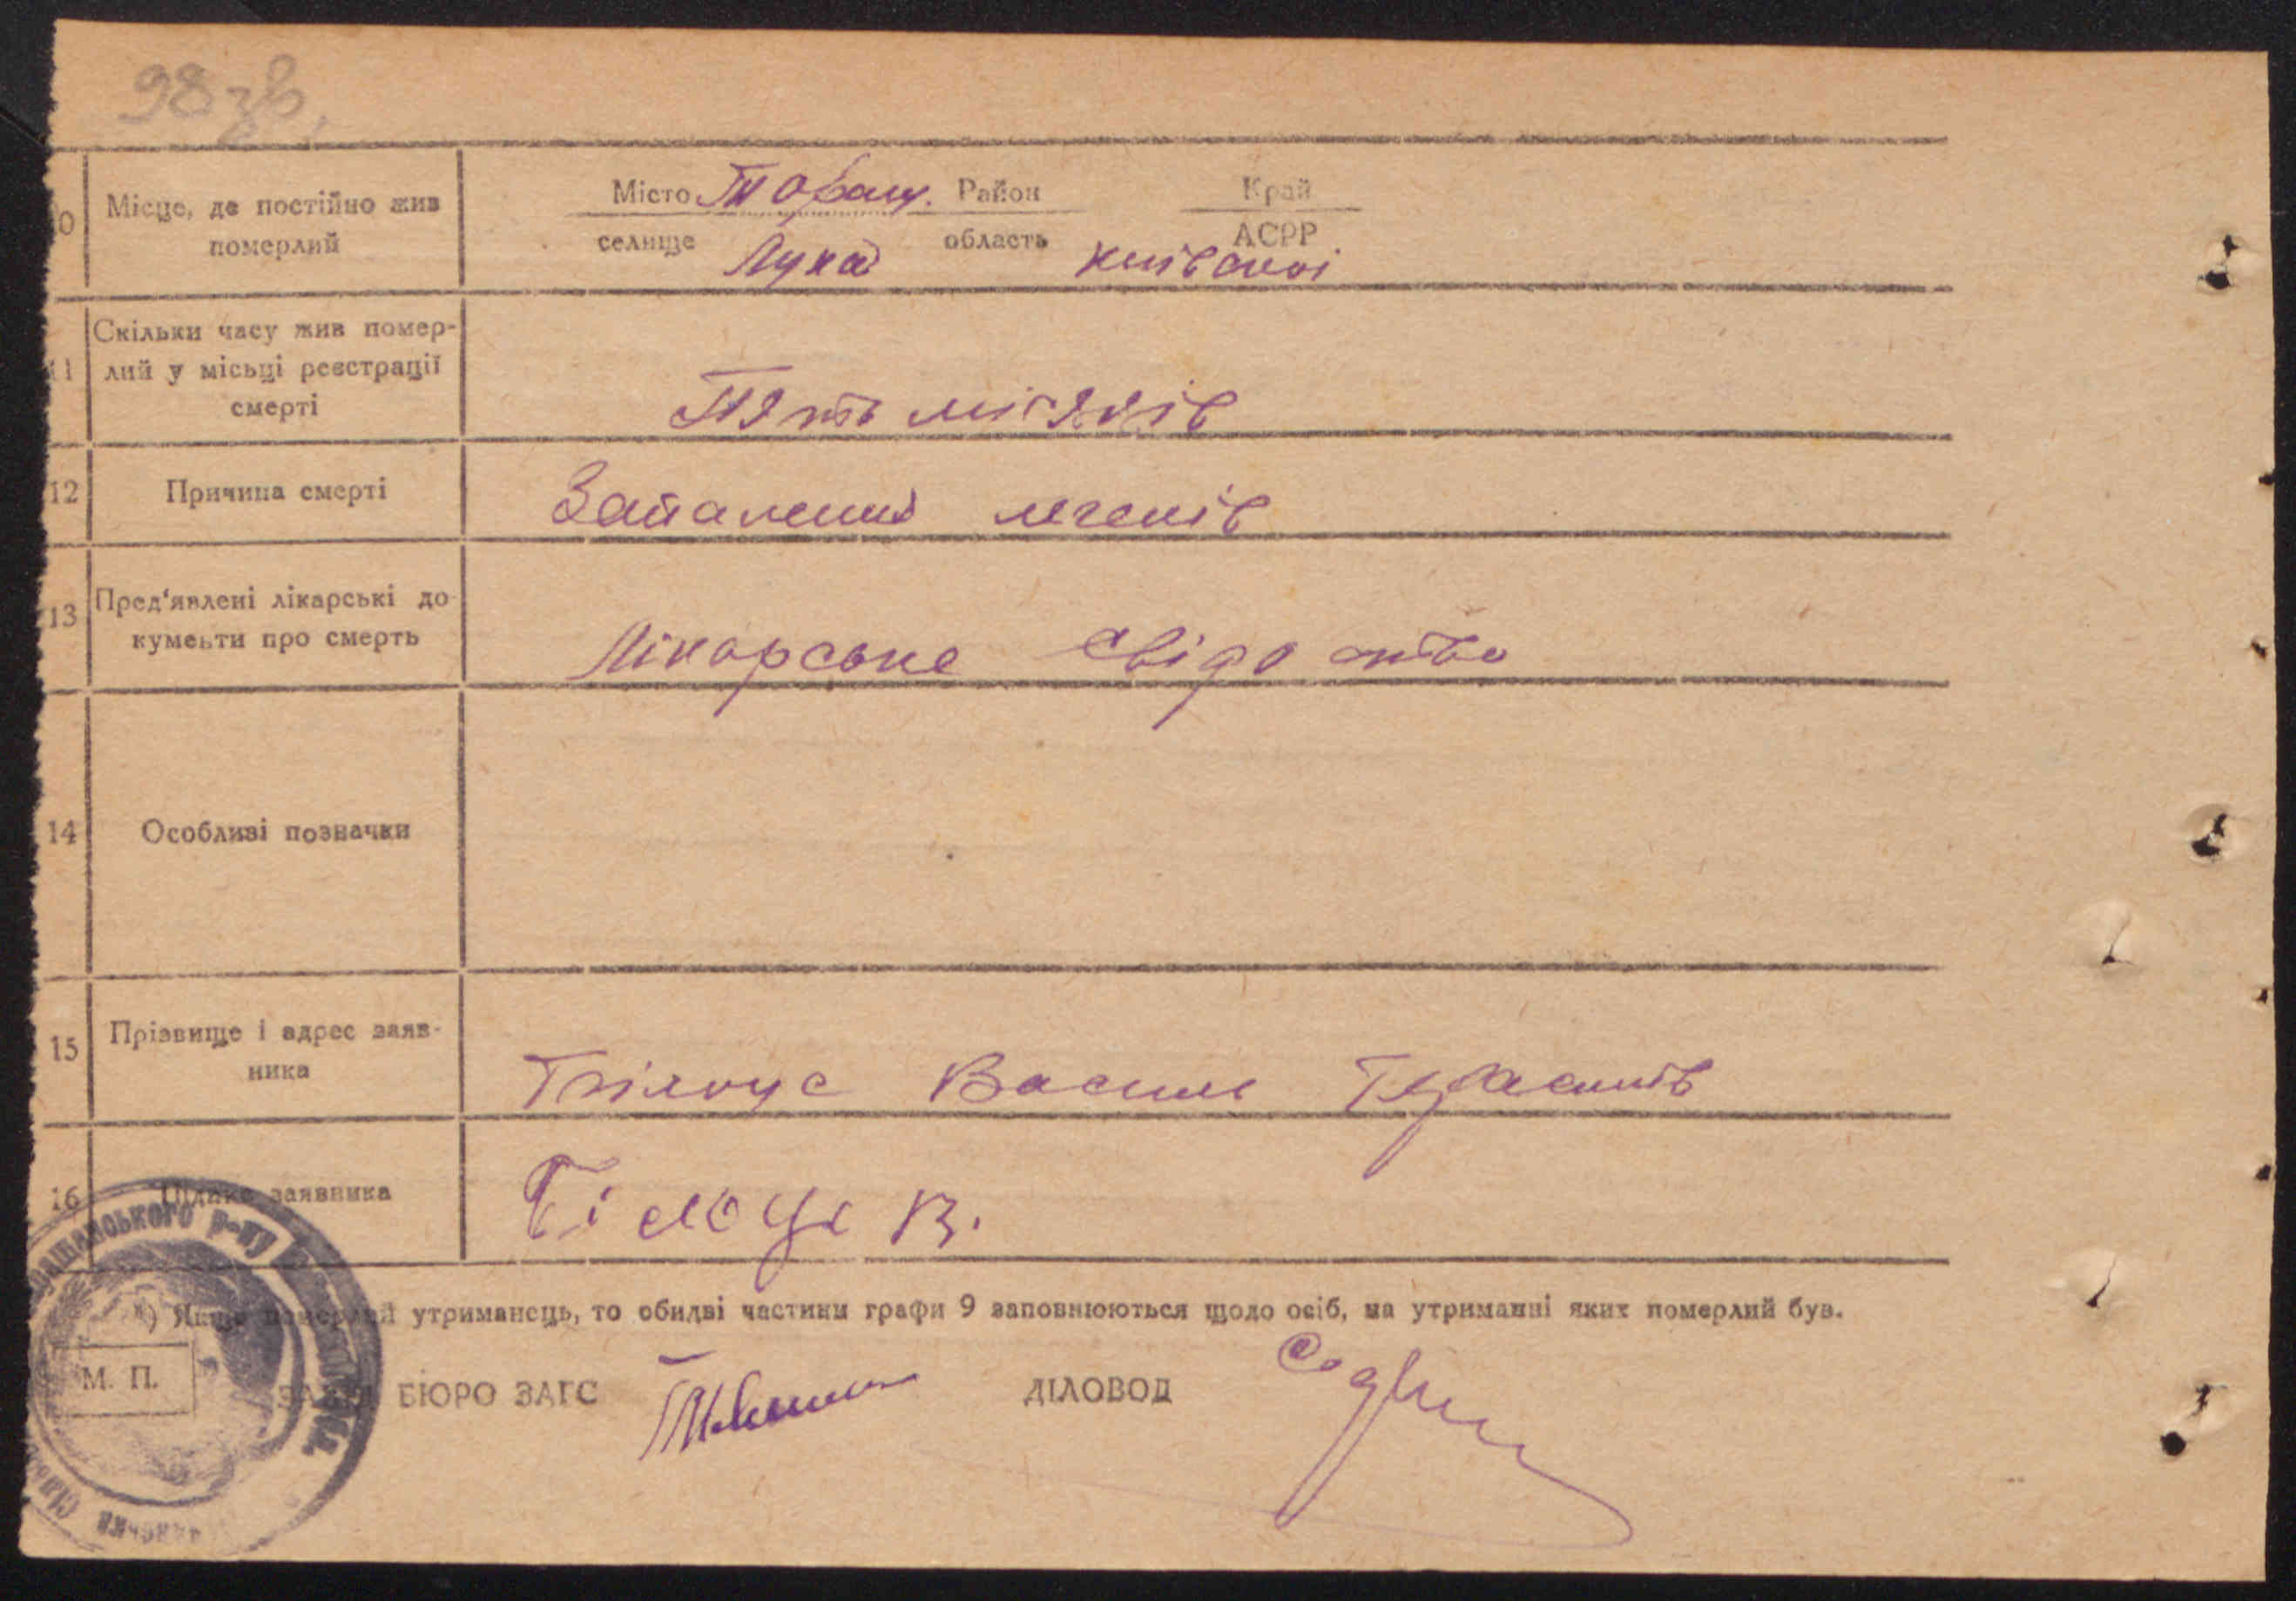 98 зв.
10 Місце, де постійно жив померлий
Місто Таращ. Район Край
селище Лука область АСРР Київської
11 Скільки часу жив помер-
лий у місьці реєстрації
смерті
Пять місяців
12 Причина смерті Запалення легенів
13 Пред'явлені лікарські до-
кументи про смерть
Лікарське свідоцтво
14 Особливі позначки
15 Прізвище і адрес заяв-
ника
Білоус Василь
16 Підпис заявника Білоус В.
*) Якщо померлий утриманець, то обидві частини графи 9 заповнюються щодо осіб, на утриманні яких померлий був.
М. П. ЗАВ. БЮРО ЗАГС ДІЛОВОД
р-ну